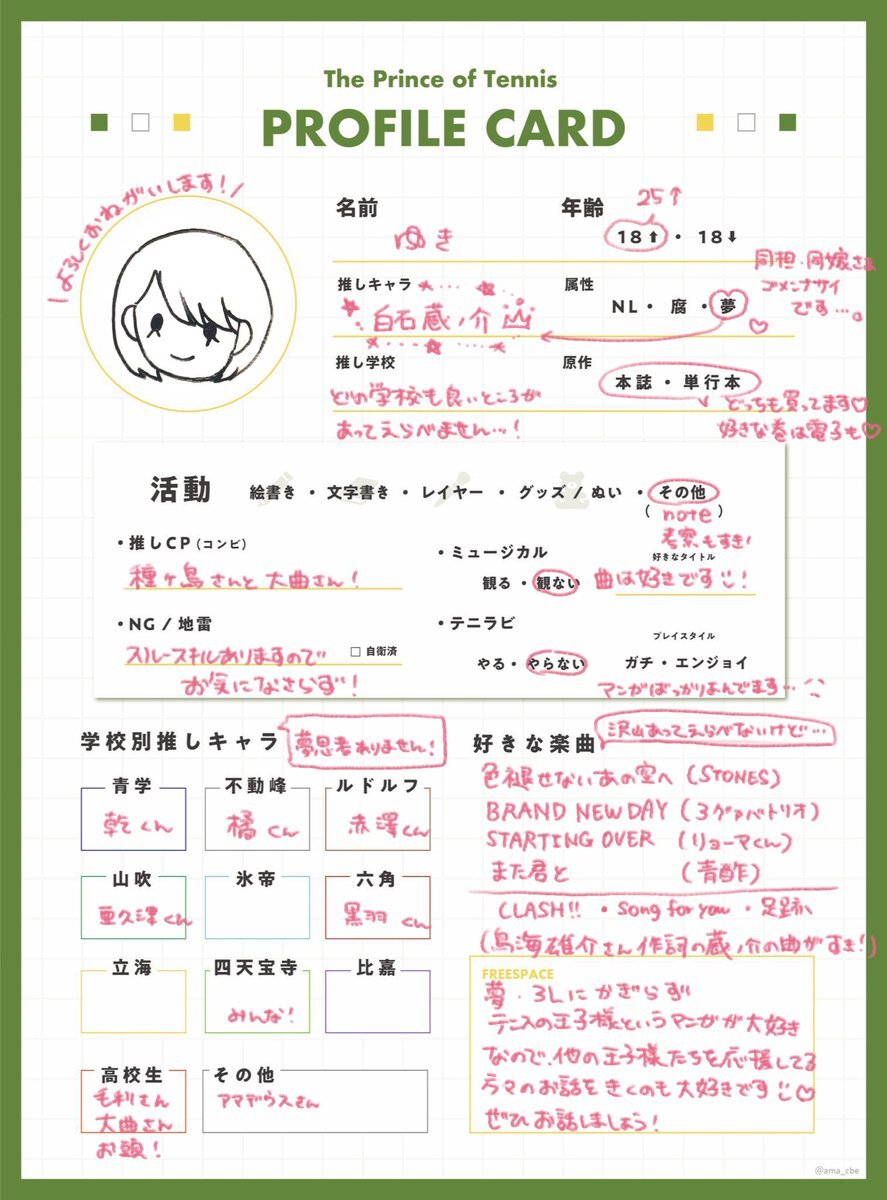 The Prince of Tennis
PROFILE CARD
\よろしくおねがいします!/
名前
ゆき
年齢
25↑
18⬆・18⬇
推しキャラ
白石蔵ノ介
属性
NL・腐・夢
同担・同嫁さま
ゴメンナサイ
です…。
推し学校
どの学校も良いところが
あってえらべません…!
原作
本誌・単行本
どっちも買ってます♡
好きな巻は電子も♡
活動
絵書き・文字書き・レイヤー・グッズ/ぬい・その他
(note)
考察もすき!
・推しCP(コンビ)
種ヶ島さんと大曲さん!
・ミュージカル
観る・観ない
好きなタイトル
曲は好きです!
・NG/地雷
スルースキルありますので
お気になさらず!
□自衛済
・テニラビ
やる・やらない
プレイスタイル
ガチ・エンジョイ
マンガばっかりよんでます…
学校別推しキャラ
夢思考ありません!
青学
乾くん
不動峰
橘くん
ルドルフ
赤澤くん
山吹
亜久津くん
氷帝
六角
黒羽くん
立海
四天宝寺
みんな!
比嘉
高校生
毛利さん
大曲さん
お頭!
その他
アマデウスさん
好きな楽曲
沢山あってえらべないけど…
色褪せないあの空へ(STONES)
BRAND NEW DAY(3グァバトリオ)
STARTING OVER(リョーマくん)
また君と(青酢)
CLASH!!・Song for you・足跡
(鳥海雄介さん作詞の蔵ノ介の曲がすき!)
FREESPACE
夢・3Lにかぎらず
テニスの王子様というマンガが大好き
なので、他の王子様たちを応援してる
方々のお話をきくのも大好きです♡
ぜひお話しましょう!
@ama_cbe